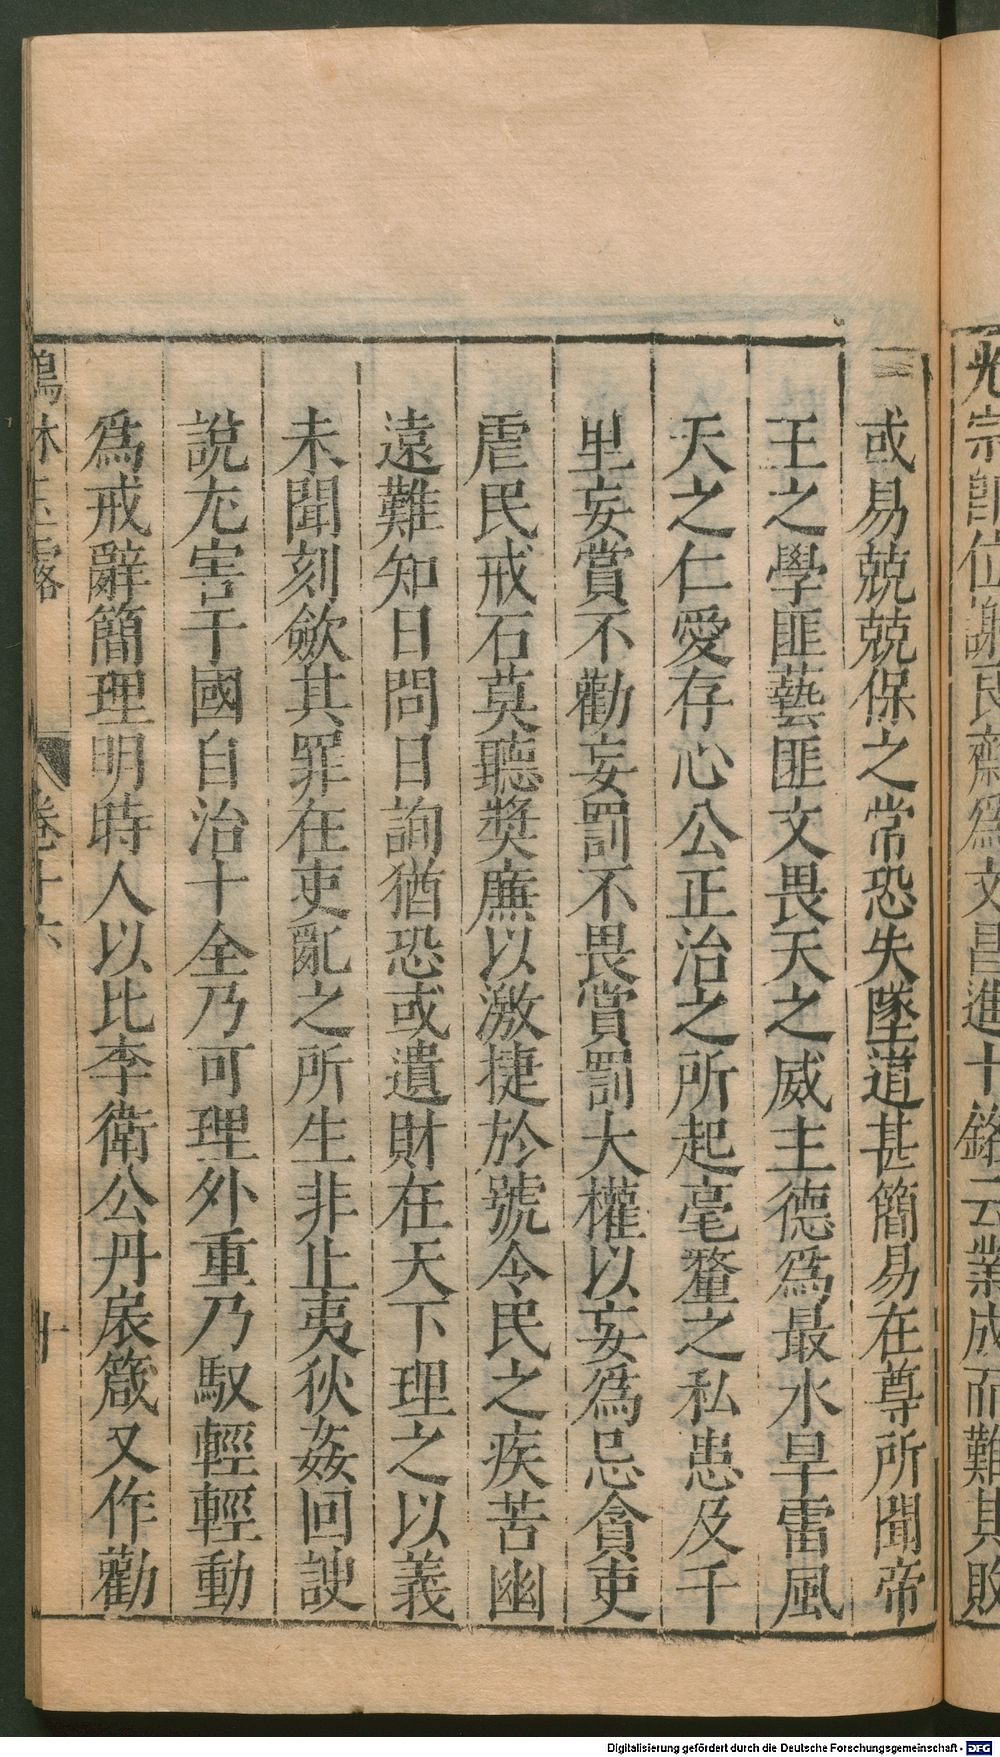 光宗即位謝良齋爲文昌進十銘云業成而難其敗
或易兢兢保之常恐失墜道甚簡易在尊所聞帝
王之學匪藝匪文畏天之威主德爲最水旱雷風
天之仁愛存心公正治之所起毫釐之私患及千
里妄賞不勸妄罰不畏賞罰大權以妄爲忌貪吏
虐民戒石莫聽奬廉以激捷於號令民之疾苦幽
遠難知日問日詢猶恐或遺財在天下理之以義
未聞刻斂其罪在吏亂之所生非止夷狄姦回諛
說尤害于國自治十全乃可理外重乃馭輕輕動
爲戒辭簡理明時人以比李衛公丹扆箴又作勸
鶴林玉露 卷十六 十
Digitalisierung gefördert durch die Deutsche Forschungsgemeinschaft - DFG